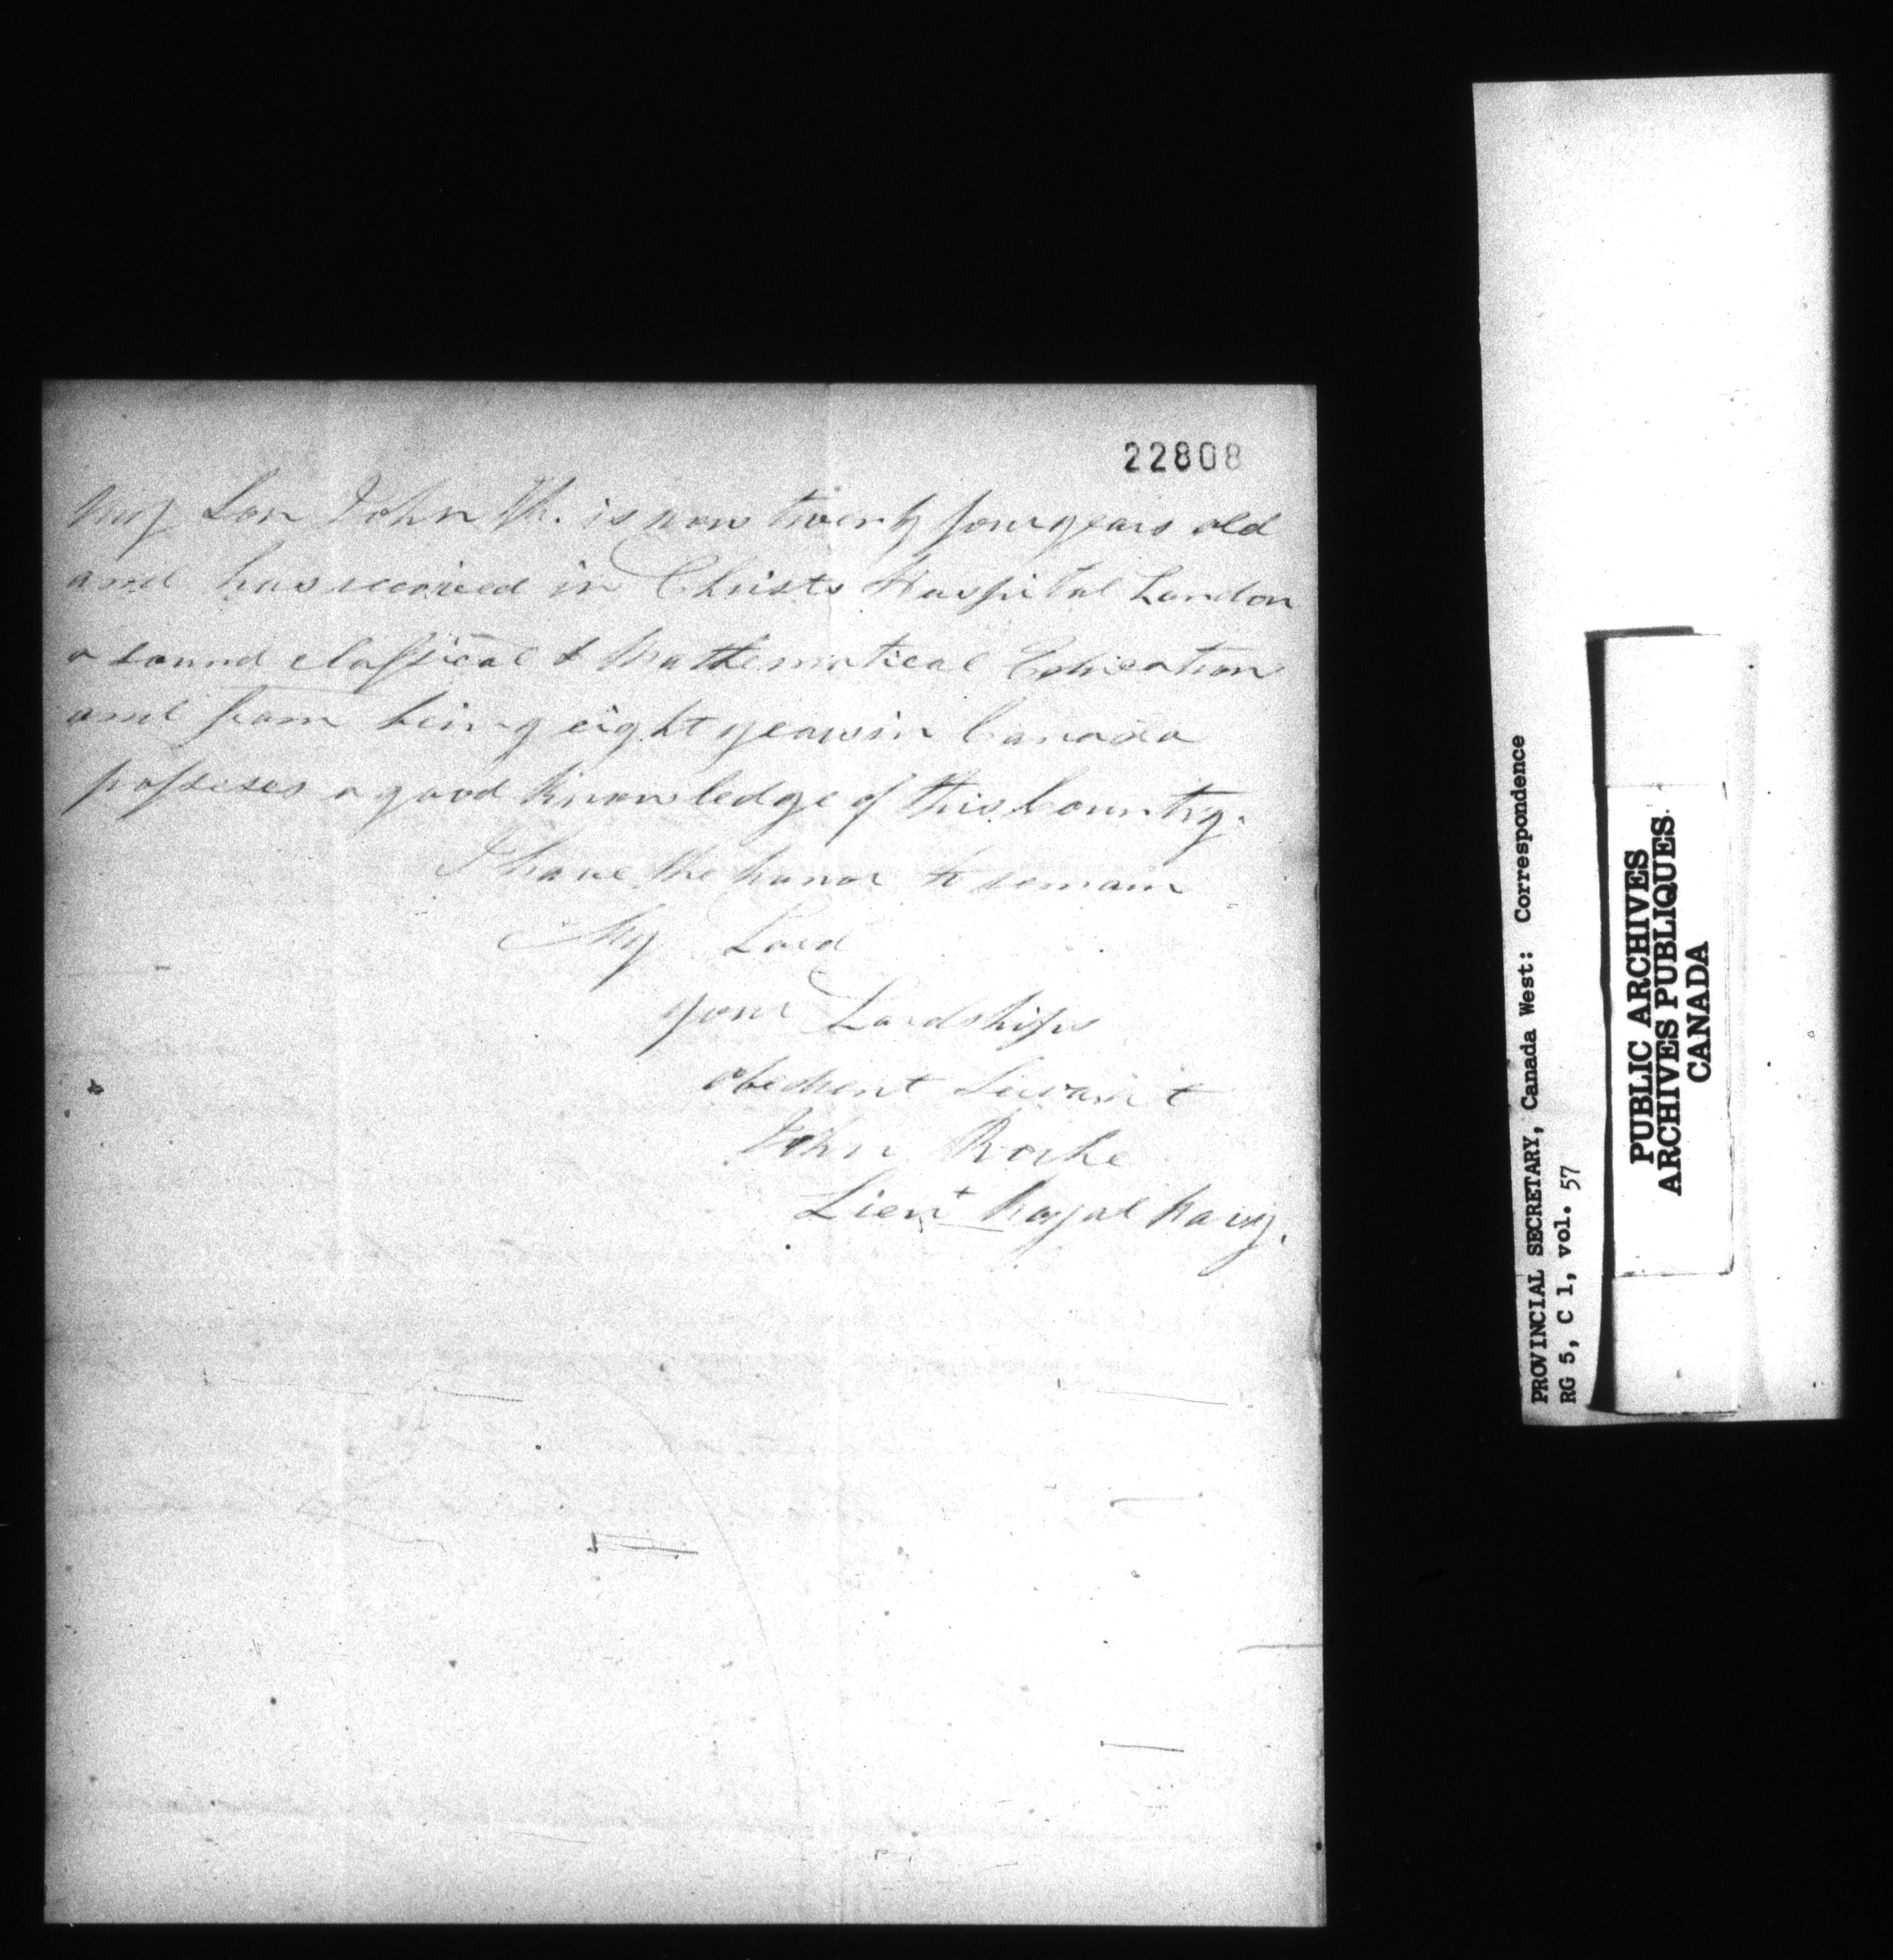 22808
My Son John K. is now twenty four years old
and has received in Christs Hospital London
a sound classical & Mathematical Education
and from being eight years in Canada
possesses a good knowledge of this Country.
I have the honor to remain
My Lord
your Lordships
obedient Servant
John Roche
Lieut Royal Navy.
PROVINCIAL SECRETARY, Canada West: Correspondence
RG 5, C 1, vol. 57
PUBLIC ARCHIVES
ARCHIVES PUBLIQUES
CANADA